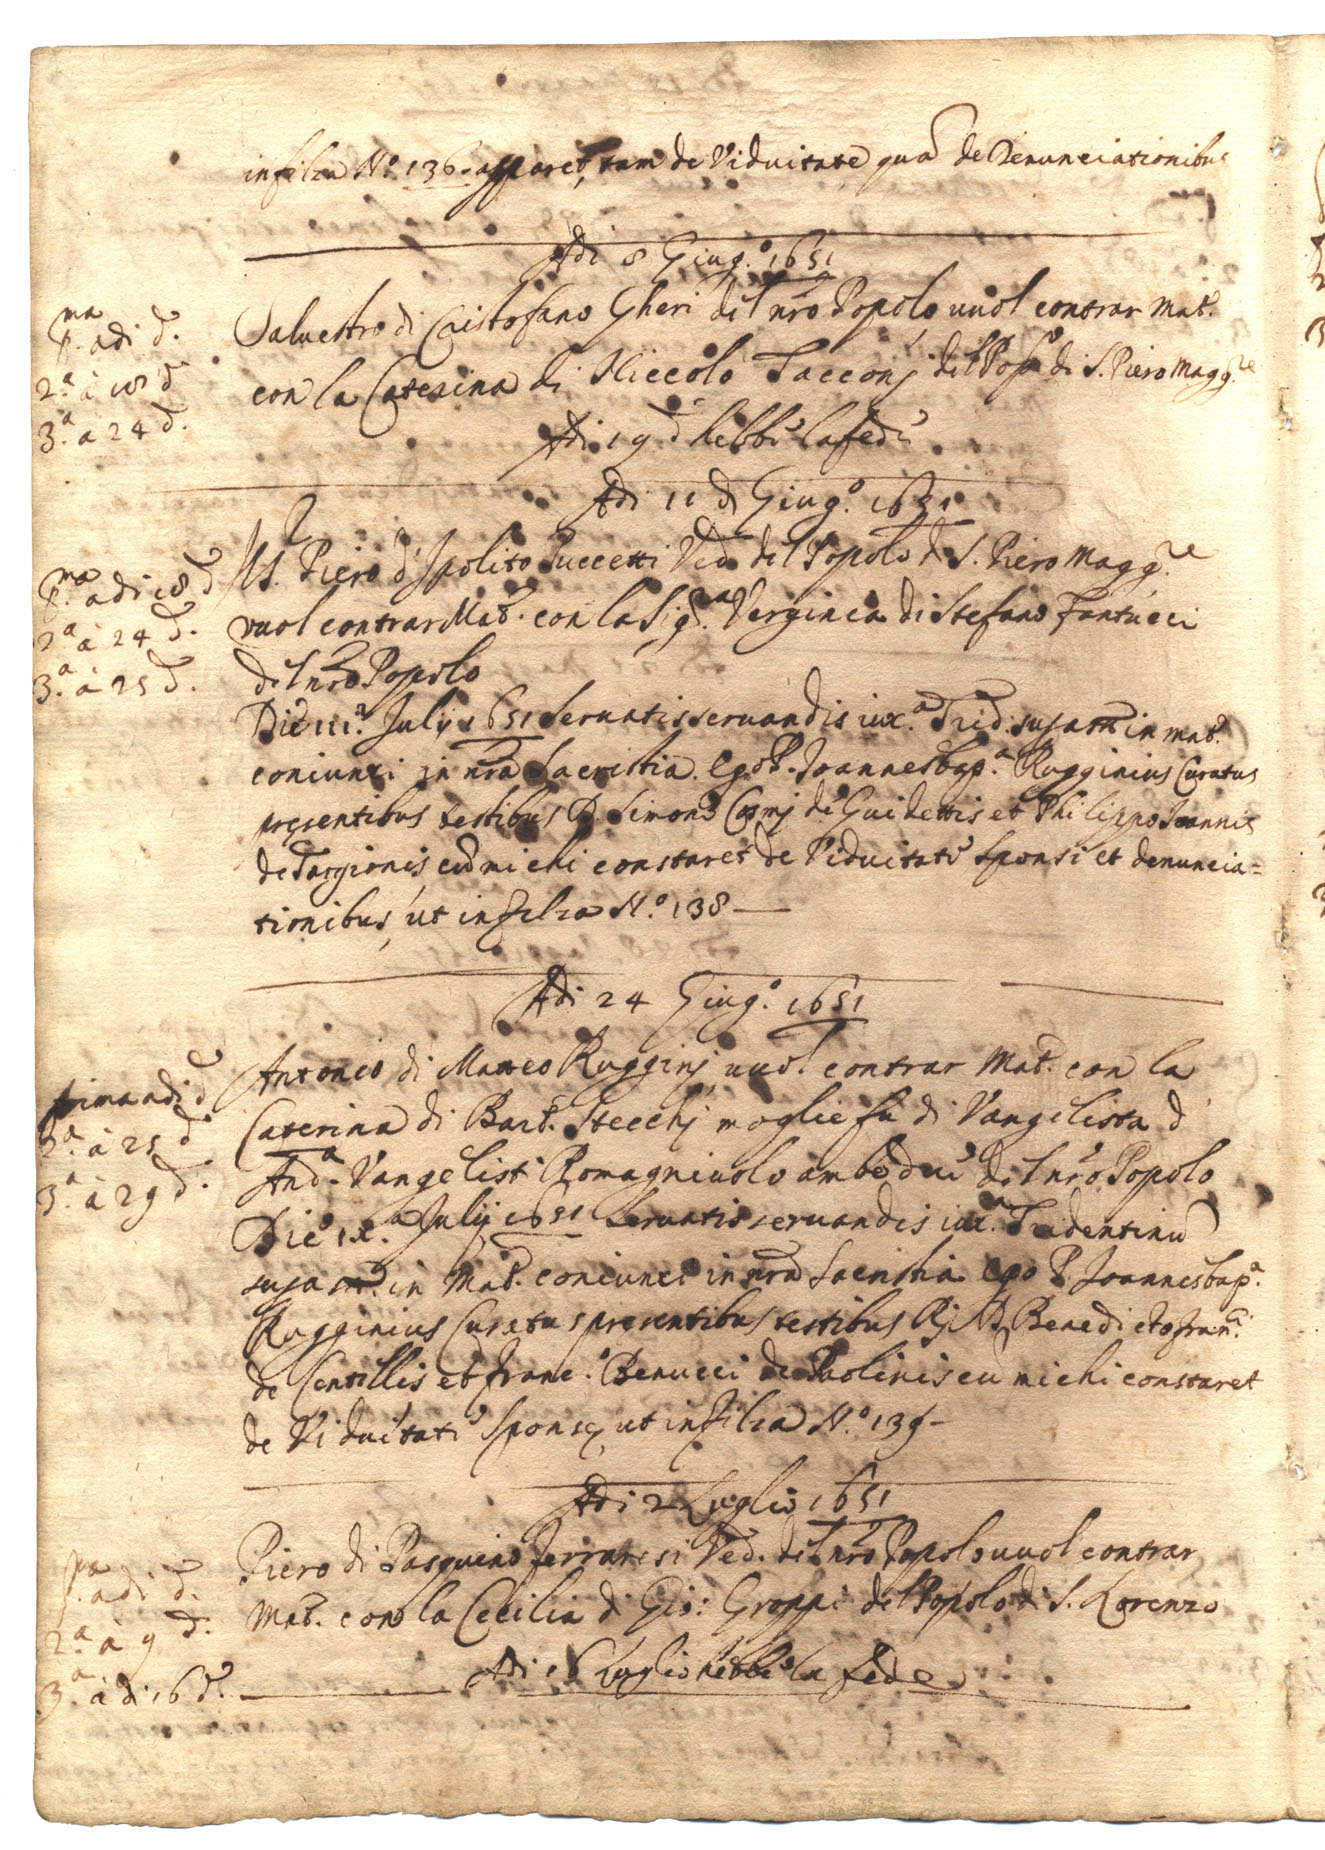 infilza N.º 136. apparet, tam de Viduitate quã de Denunciationibus
Adi 8 Giug.º 1651
p.ma adi d.º
2.ª à 18 d.º
3.ª a 24 d.º
Salvestro di Cristofano Gheri del nrõ Popolo vuol contrar Mat.º
con la Caterina di Niccolò Tacconj del Pop.º di S. Piero Magg.re
Adi 19 d.º hebbe la fede
Adi 11 di Giug.º 1651
p.ma adi 18 d.º
2.ª à 24 d.º
3.ª à 25 d.º
Ms. Piero d'Ipolito Puccetti Ved.º del Popolo di S. Piero Magg.re
vuol contrar Mat.º con la Sig.ra Verginia di Stefano Fantucci
del nrõ Popolo
Die iii.ª Julij 1651 Servatis servandis iux.ª Trid. supa.tti in mat.º
coniunxi in nrã Sacristia. Ego P. Joannesbap.ª Rugginius Curatus
presentibus testibus D. Simone Cosmj de Guidettis et Philippo Joannis
de Targionis, cũ michi constaret de Viduitate Sponsi et denuncia=
tionibus, ut in filza N.º 138 —
Adi 24 Giug.º 1651
prima adi d.º
2.ª à 25 d.º
3.ª à 29 d.º
Antonio di Matteo Rugginj vuol contrar Mat.º con la
Caterina di Bart.º Stecchj moglie fu di Vangelista d'
And.ª Vangelisti Romagniuolo ambedue del nrõ Popolo
Die ix.ª Julij 1651 Servatis servandis iux.ª Tridentinũ
supa.tti in Mat.º coniunxi in nrã Sacristia Ego P. Joannesbap.ª
Rugginius Curatus presentibus testibus Rj. D. Benedicto Fran.ci
de Centellis et Franc.º Benucci de Paolinis cũ michi constaret
de Viduitate Sponsę, ut infilza N.º 139 —
Adi 2 Luglio 1651
p.ª adi d.º
2.ª à 9 d.º
3.ª à di 16 d.º
Piero di Pasquino Ferraresi Ved.º del nrõ Popolo vuol contrar
Mat.º con la Cecilia di Gio: Groppi del Popolo di S. Lorenzo
Adi 16 luglio hebbe la fede